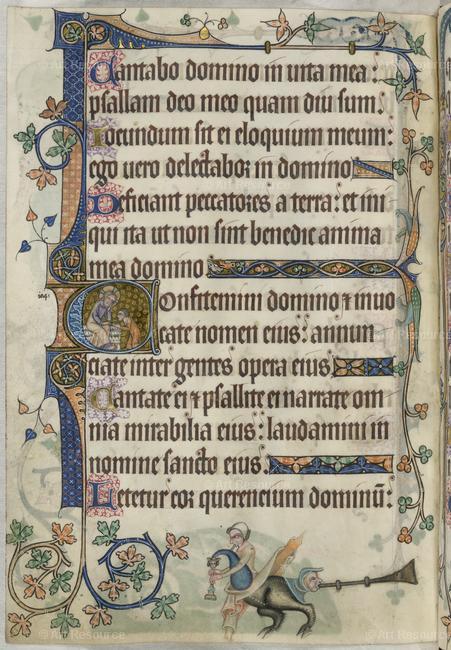 Cantabo domino in uita mea:
psallam deo meo quam diu sum
Iocundum sit ei eloquium meum:
ego uero delectabor in domino
Deficiant peccatores a terra: et ini
qui ita ut non sint benedic anima
mea domino
Confitemini domino ⁊ inuo
cate nomen eius: annun
ciate inter gentes opera eius
Cantate ei ⁊ psallite ei narrate om
nia mirabilia eius: laudamini in
nomine sancto eius
Letetur cor querencium dominū:
© Art Resource
© Art Resource
© Art Resource